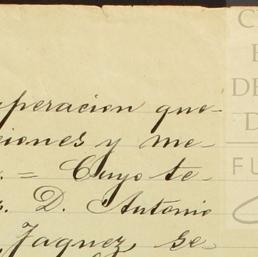 peracion que-
ciones y me-
= Cuyo te-
D. Antonio
Jaquez, se-
C
E
DE
D
FU